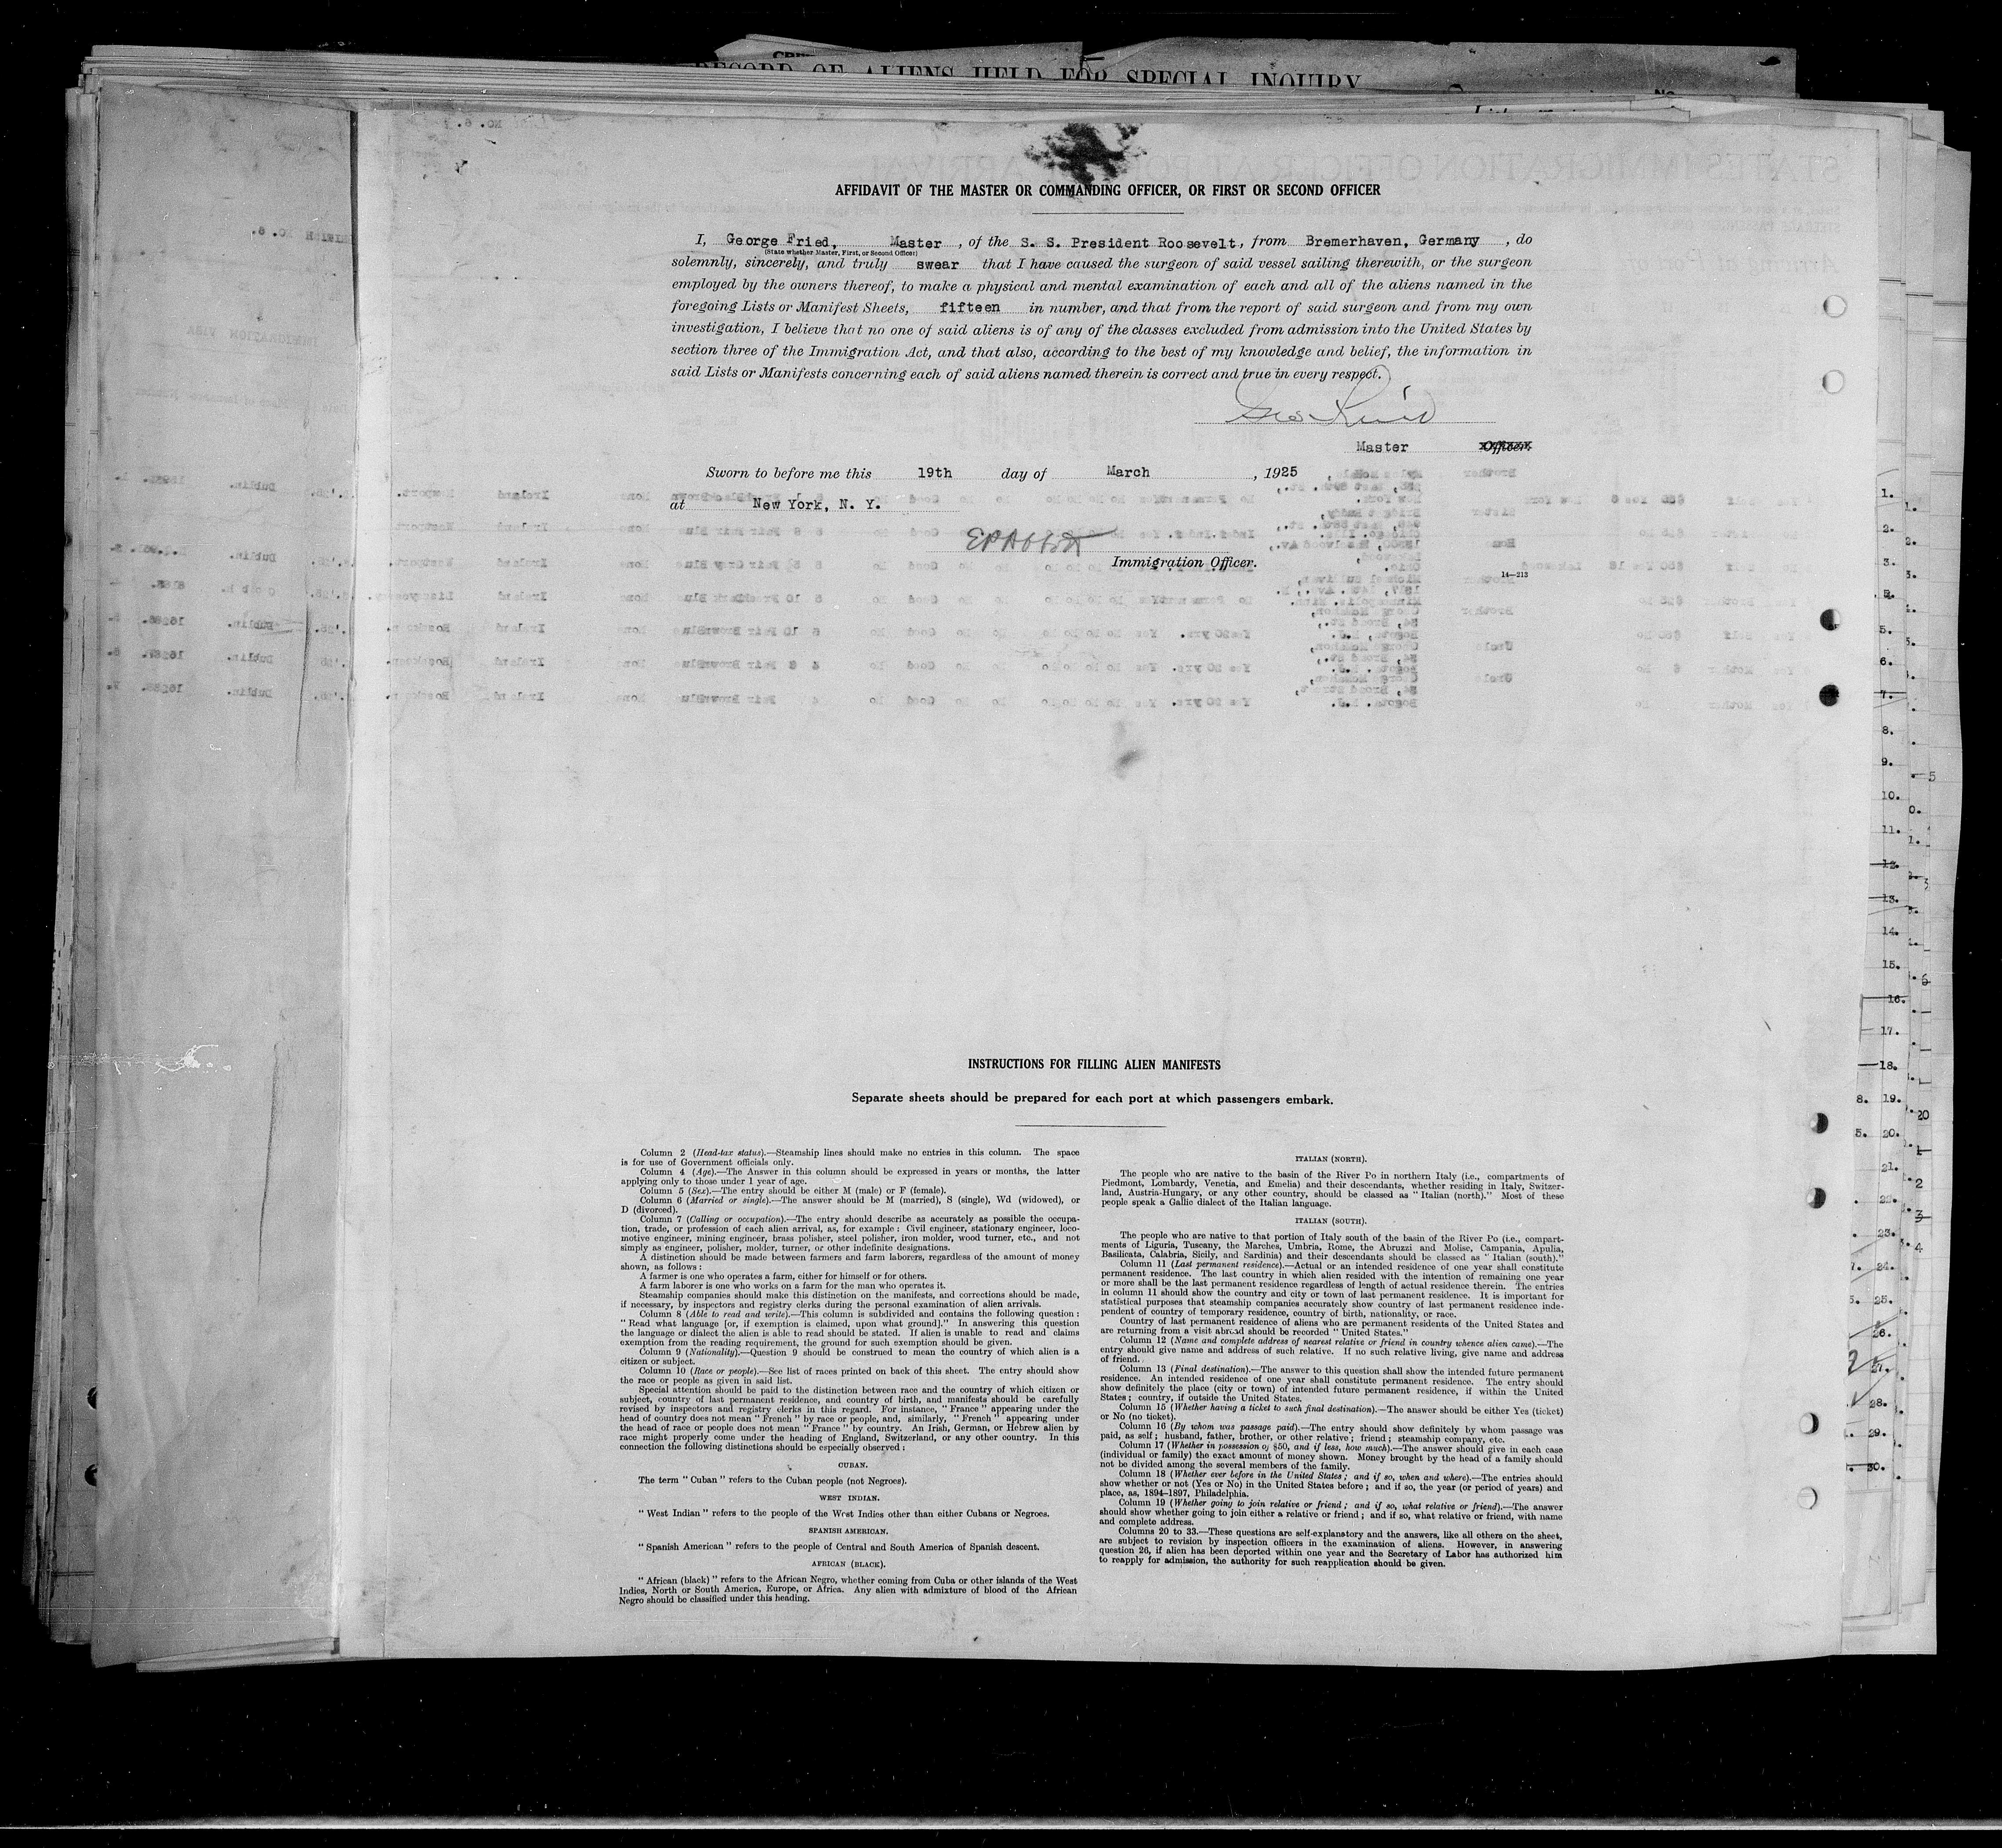 RECORD OF ALIENS HELD FOR SPECIAL INQUIRY
AFFIDAVIT OF THE MASTER OR COMMANDING OFFICER, OR FIRST OR SECOND OFFICER
I, George Fried, Master, of the S. S. President Roosevelt, from Bremerhaven, Germany, do
(State whether Master, First, or Second Officer)
solemnly, sincerely, and truly swear that I have caused the surgeon of said vessel sailing therewith, or the surgeon
employed by the owners thereof, to make a physical and mental examination of each and all of the aliens named in the
foregoing Lists or Manifest Sheets, fifteen in number, and that from the report of said surgeon and from my own
investigation, I believe that no one of said aliens is of any of the classes excluded from admission into the United States by
section three of the Immigration Act, and that also, according to the best of my knowledge and belief, the information in
said Lists or Manifests concerning each of said aliens named therein is correct and true in every respect.
Geo Fried
Master Officer.
Sworn to before me this 19th day of March, 1925
at New York, N. Y.
Immigration Officer.
14—213
INSTRUCTIONS FOR FILLING ALIEN MANIFESTS
Separate sheets should be prepared for each port at which passengers embark.
Column 2 (Head-tax status).—Steamship lines should make no entries in this column. The space
is for use of Government officials only.
Column 4 (Age).—The Answer in this column should be expressed in years or months, the latter
applying only to those under 1 year of age.
Column 5 (Sex).—The entry should be either M (male) or F (female).
Column 6 (Married or single).—The answer should be M (married), S (single), Wd (widowed), or
D (divorced).
Column 7 (Calling or occupation).—The entry should describe as accurately as possible the occupa-
tion, trade, or profession of each alien arrival, as, for example: Civil engineer, stationary engineer, loco-
motive engineer, mining engineer, brass polisher, steel polisher, iron molder, wood turner, etc., and not
simply as engineer, polisher, molder, turner, or other indefinite designations.
A distinction should be made between farmers and farm laborers, regardless of the amount of money
shown, as follows:
A farmer is one who operates a farm, either for himself or for others.
A farm laborer is one who works on a farm for the man who operates it.
Steamship companies should make this distinction on the manifests, and corrections should be made,
if necessary, by inspectors and registry clerks during the personal examination of alien arrivals.
Column 8 (Able to read and write).—This column is subdivided and contains the following question:
"Read what language [or, if exemption is claimed, upon what ground]." In answering this question
the language or dialect the alien is able to read should be stated. If alien is unable to read and claims
exemption from the reading requirement, the ground for such exemption should be given.
Column 9 (Nationality).—Question 9 should be construed to mean the country of which alien is a
citizen or subject.
Column 10 (Race or people).—See list of races printed on back of this sheet. The entry should show
the race or people as given in said list.
Special attention should be paid to the distinction between race and the country of which citizen or
subject, country of last permanent residence, and country of birth, and manifests should be carefully
revised by inspectors and registry clerks in this regard. For instance, "France" appearing under the
head of country does not mean "French" by race or people, and, similarly, "French" appearing under
the head of race or people does not mean "France" by country. An Irish, German, or Hebrew alien by
race might properly come under the heading of England, Switzerland, or any other country. In this
connection the following distinctions should be especially observed:
CUBAN.
The term "Cuban" refers to the Cuban people (not Negroes).
WEST INDIAN.
"West Indian" refers to the people of the West Indies other than either Cubans or Negroes.
SPANISH AMERICAN.
"Spanish American" refers to the people of Central and South America of Spanish descent.
AFRICAN (BLACK).
"African (black)" refers to the African Negro, whether coming from Cuba or other islands of the West
Indies, North or South America, Europe, or Africa. Any alien with admixture of blood of the African
Negro should be classified under this heading.
ITALIAN (NORTH).
The people who are native to the basin of the River Po in northern Italy (i.e., compartments of
Piedmont, Lombardy, Venetia, and Emelia) and their descendants, whether residing in Italy, Switzer-
land, Austria-Hungary, or any other country, should be classed as "Italian (north)." Most of these
people speak a Gallic dialect of the Italian language.
ITALIAN (SOUTH).
The people who are native to that portion of Italy south of the basin of the River Po (i.e., compart-
ments of Liguria, Tuscany, the Marches, Umbria, Rome, the Abruzzi and Molise, Campania, Apulia,
Basilicata, Calabria, Sicily, and Sardinia) and their descendants should be classed as "Italian (south)."
Column 11 (Last permanent residence).—Actual or an intended residence of one year shall constitute
permanent residence. The last country in which alien resided with the intention of remaining one year
or more shall be the last permanent residence regardless of length of actual residence therein. The entries
in column 11 should show the country and city or town of last permanent residence. It is important for
statistical purposes that steamship companies accurately show country of last permanent residence inde-
pendent of country of temporary residence, country of birth, nationality, or race.
Country of last permanent residence of aliens who are permanent residents of the United States and
are returning from a visit abroad should be recorded "United States."
Column 12 (Name and complete address of nearest relative or friend in country whence alien came).—The
entry should give name and address of such relative. If no such relative living, give name and address
of friend.
Column 13 (Final destination).—The answer to this question shall show the intended future permanent
residence. An intended residence of one year shall constitute permanent residence. The entry should
show definitely the place (city or town) of intended future permanent residence, if within the United
States; country, if outside the United States.
Column 15 (Whether having a ticket to such final destination).—The answer should be either Yes (ticket)
or No (no ticket).
Column 16 (By whom was passage paid).—The entry should show definitely by whom passage was
paid, as self; husband, father, brother, or other relative; friend; steamship company, etc.
Column 17 (Whether in possession of $50, and if less, how much).—The answer should give in each case
(individual or family) the exact amount of money shown. Money brought by the head of a family should
not be divided among the several members of the family.
Column 18 (Whether ever before in the United States; and if so, when and where).—The entries should
show whether or not (Yes or No) in the United States before; and if so, the year (or period of years) and
place, as, 1894–1897, Philadelphia.
Column 19 (Whether going to join relative or friend; and if so, what relative or friend).—The answer
should show whether going to join either a relative or friend; and if so, what relative or friend, with name
and complete address.
Columns 20 to 33.—These questions are self-explanatory and the answers, like all others on the sheet,
are subject to revision by inspection officers in the examination of aliens. However, in answering
question 26, if alien has been deported within one year and the Secretary of Labor has authorized him
to reapply for admission, the authority for such reapplication should be given.
1.
2.
3.
5.
6.
7.
8.
9.
10.
11.
12.
13.
14.
15.
16.
17.
18.
19.
20.
21.
22.
23.
24.
25.
26.
27.
28.
29.
30.